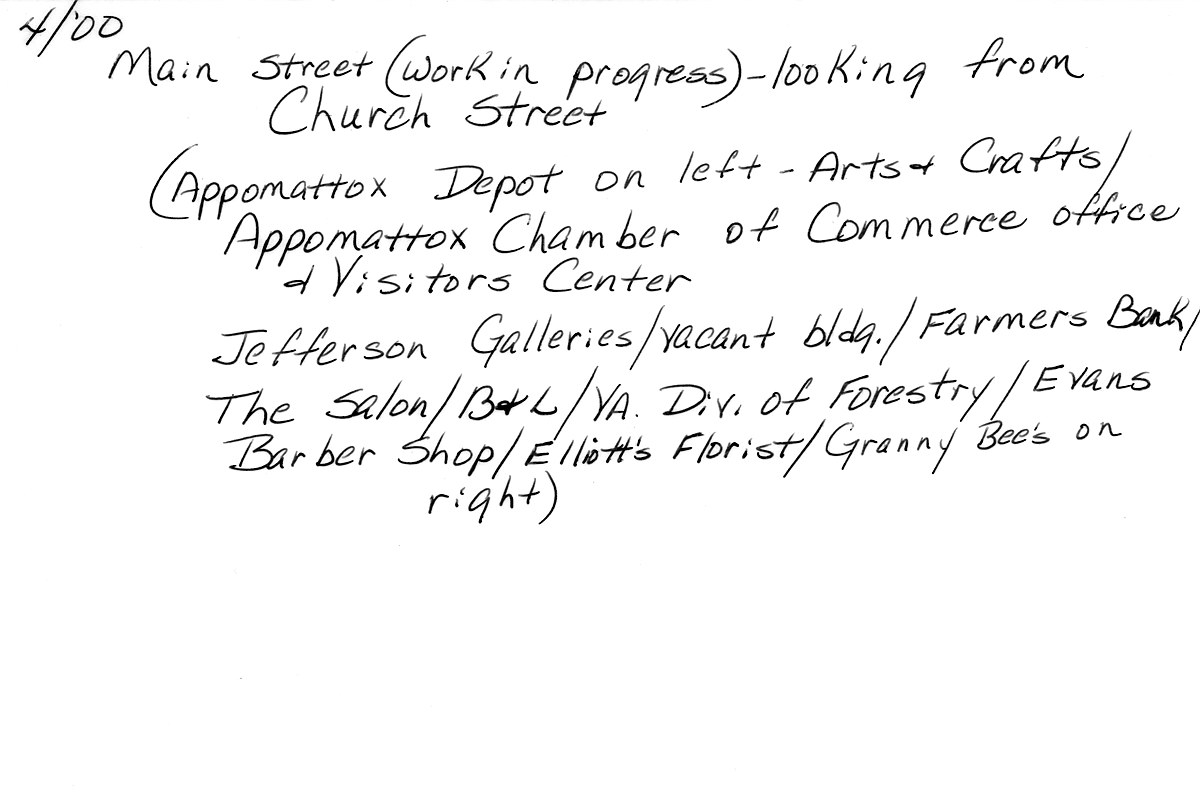 4/'00
Main Street (Work in progress) - looking from
Church Street
(Appomattox Depot on left - Arts & Crafts/
Appomattox Chamber of Commerce office
& Visitors Center
Jefferson Galleries/vacant bldg./Farmers Bank/
The Salon/B&L/VA. Div. of Forestry/Evans
Barber Shop/Elliott's Florist/Granny Bee's on
right)